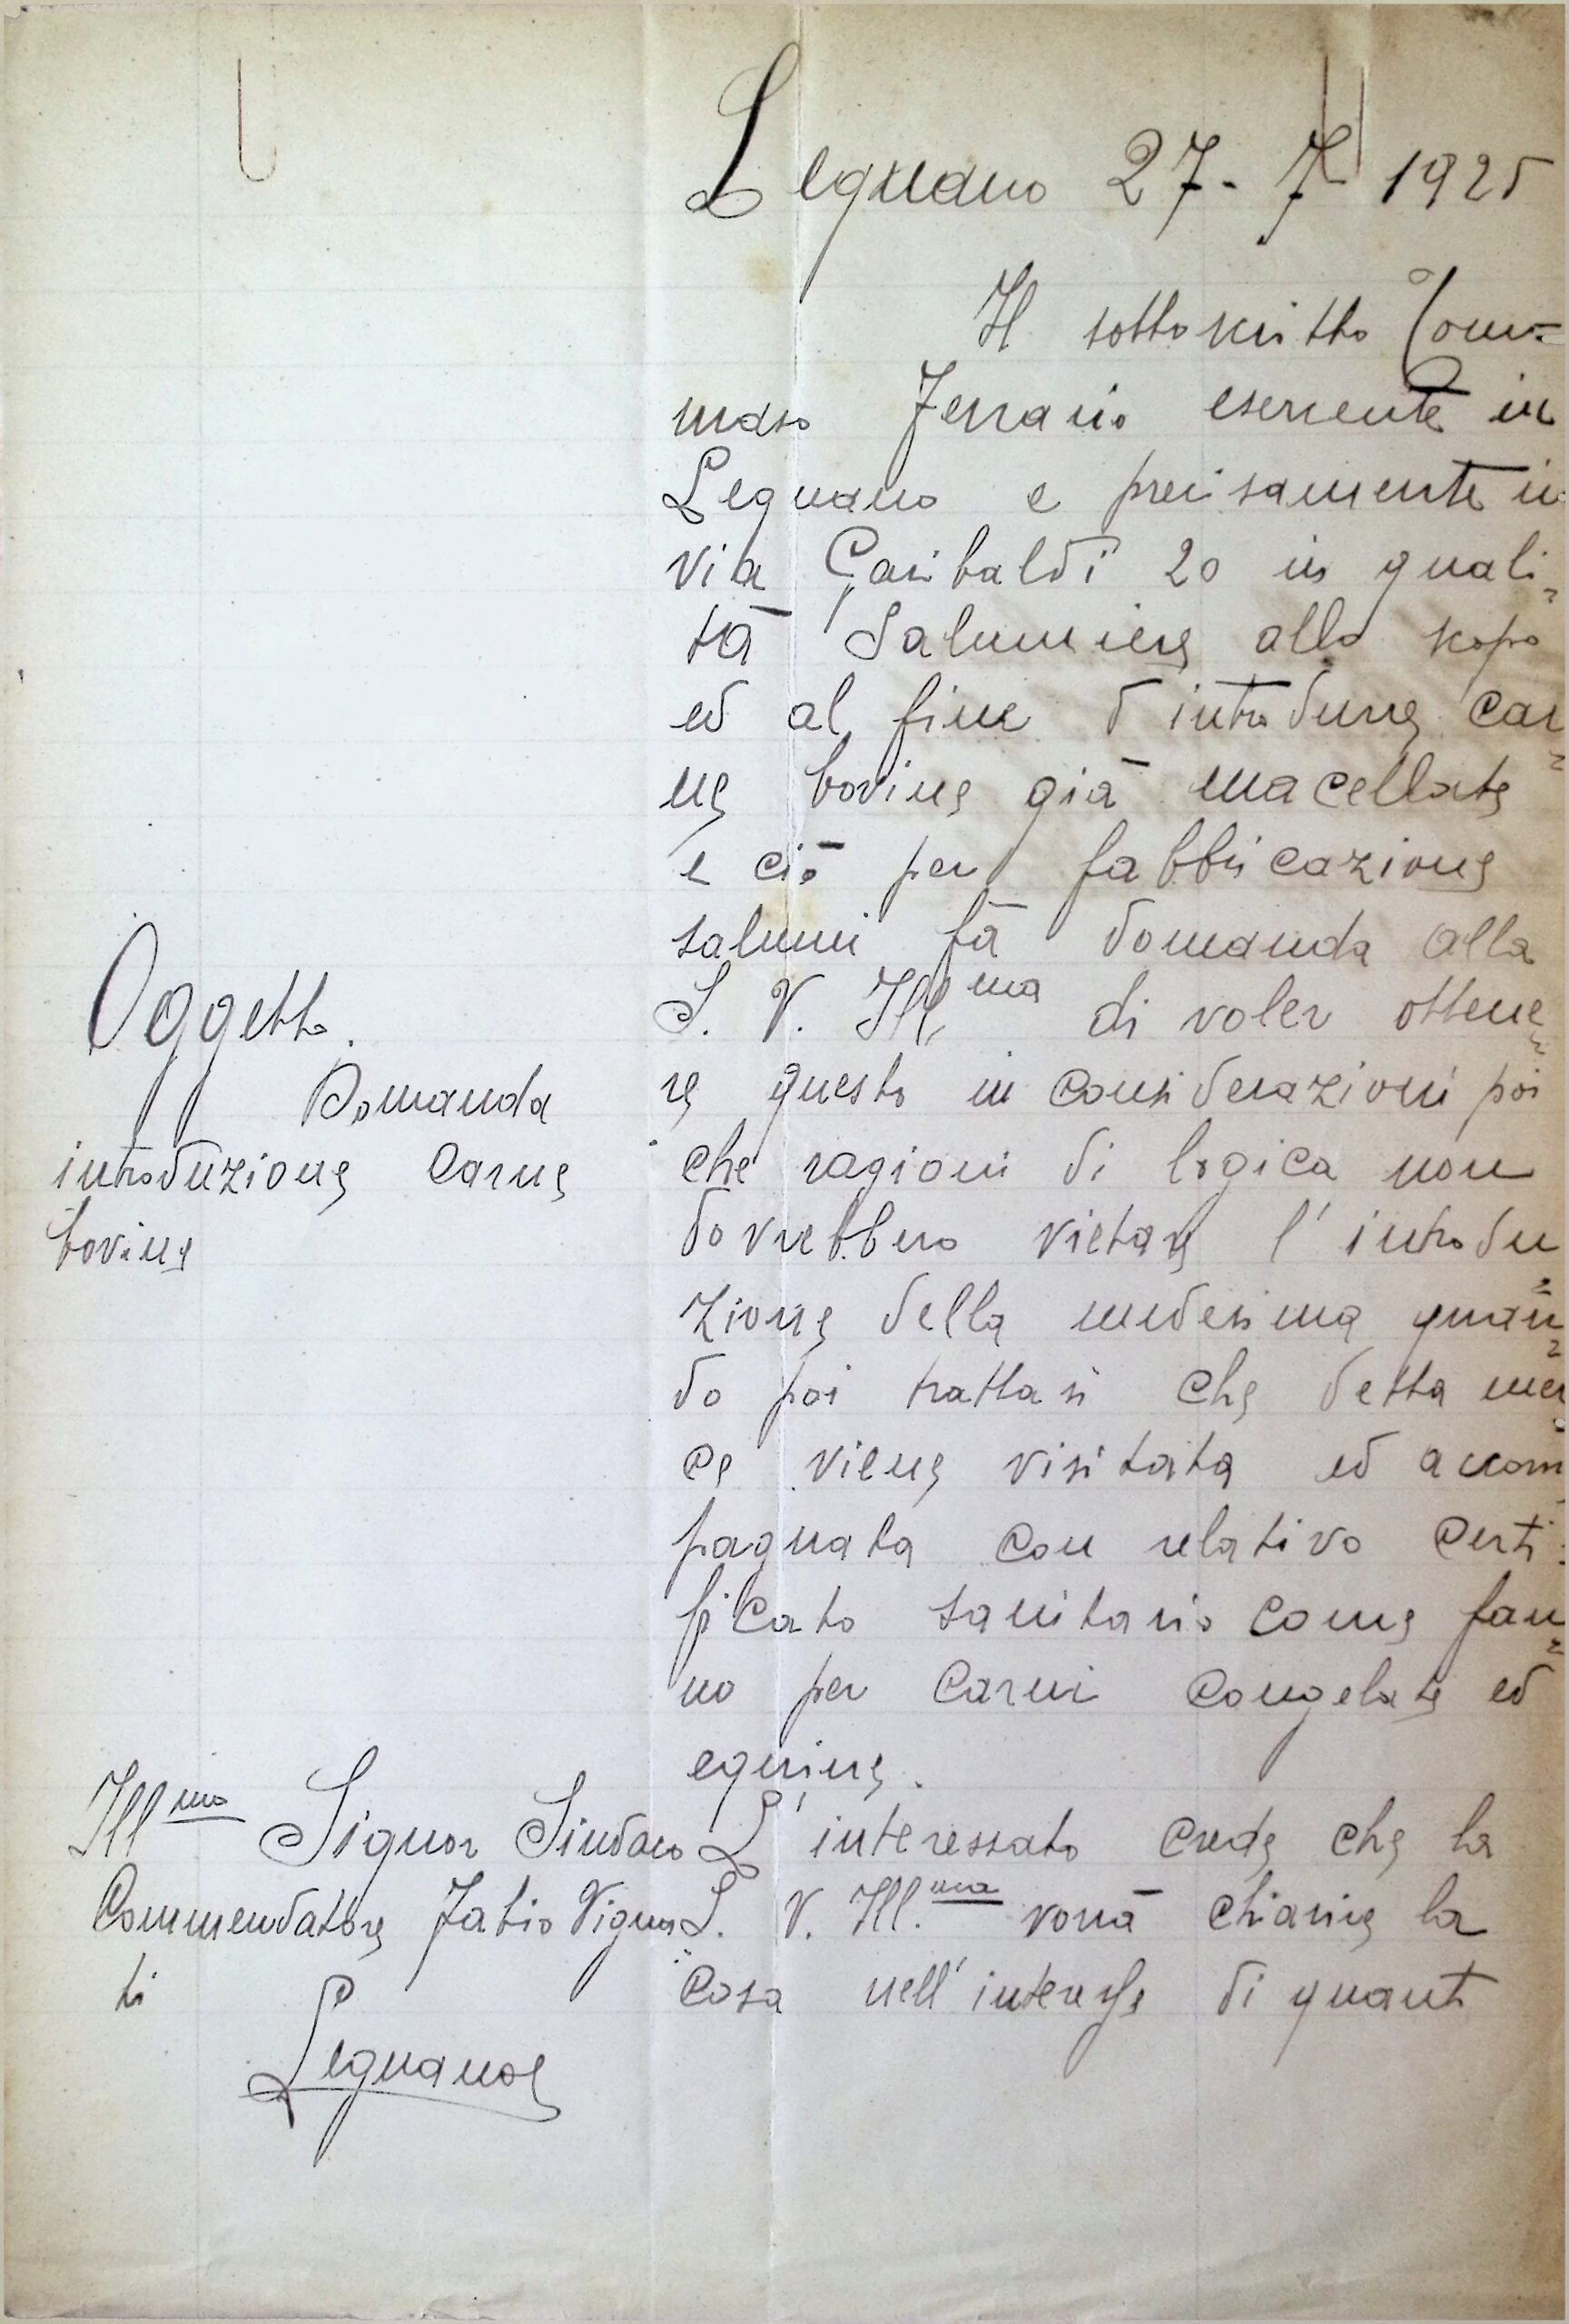 Legnano 27-7 1925
Il sottoscritto Tom=
maso Ferrario esercente in
Legnano e precisamente in
via Garibaldi 20 in quali=
tà Salumiere allo scopo
ed al fine d introdurre car=
ne bovine già macellate
e ciò per fabbricazione
salumi fà domanda alla
S. V. Ill,ma di voler ottene=
re questo in considerazioni poi
che ragioni di logica non
dovrebbero vietare l'introdu=
zione della medesima quan=
do poi trattasi che detta mer=
ce viene visitata ed accom=
pagnata con relativo certi=
ficato sanitario come fan=
no per carni congelate ed
equine.
L'interessato crede che la
S. V. Ill.ma vorrà chiarire la
cosa nell'interesse di quanti
Oggetto.
Domanda
introduzione carne
bovine
Illmo Signor Sindaco
Commendatore Fabio Vigna
ti
Legnano